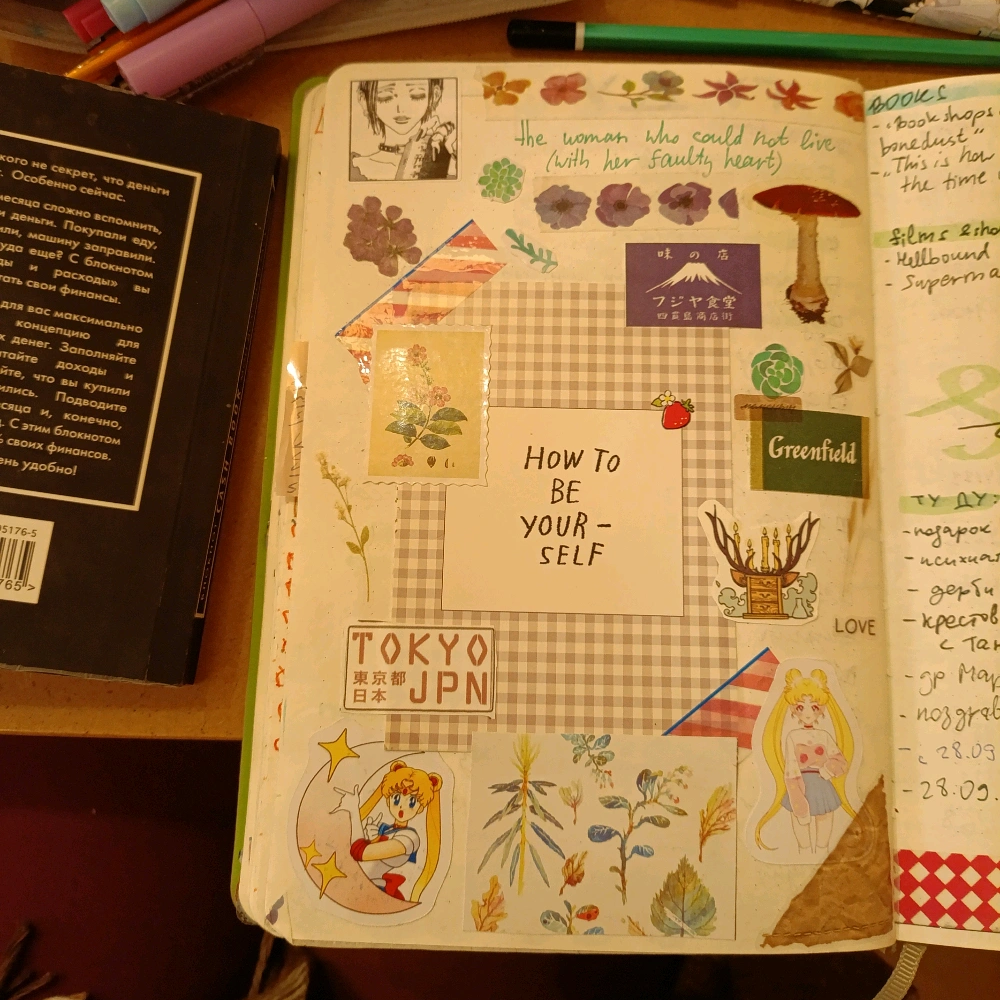 кого не секрет, что деньги
Особенно сейчас.
месяца сложно вспомнить,
и деньги. Покупали еду,
или, машину заправили.
уда еще? С блокнотом
ды и расходы» вы
тать свои финансы.
для вас максимально
концепцию для
х денег. Заполняйте
тайте доходы и
йте, что вы купили
лись. Подводите
есяца и, конечно,
С этим блокнотом
своих финансов.
ень удобно!
05176-5
765 >
the woman who could not live
(with her faulty heart)
味の店
フジヤ食堂
四貫島商店街
Greenfield
HOW TO
BE
YOUR-
SELF
LOVE
TOKYO
東京都
日本
JPN
BOOKS
- "Bookshops
bonedust"
- "This is how
the time
films & sho
- Hellbound
- Superma
ТУ ДУ:
- подарок
- психиат
- дерби
- крестов
с Тан
- др Мар
- поздрав
- с 28.09
- 28.09.